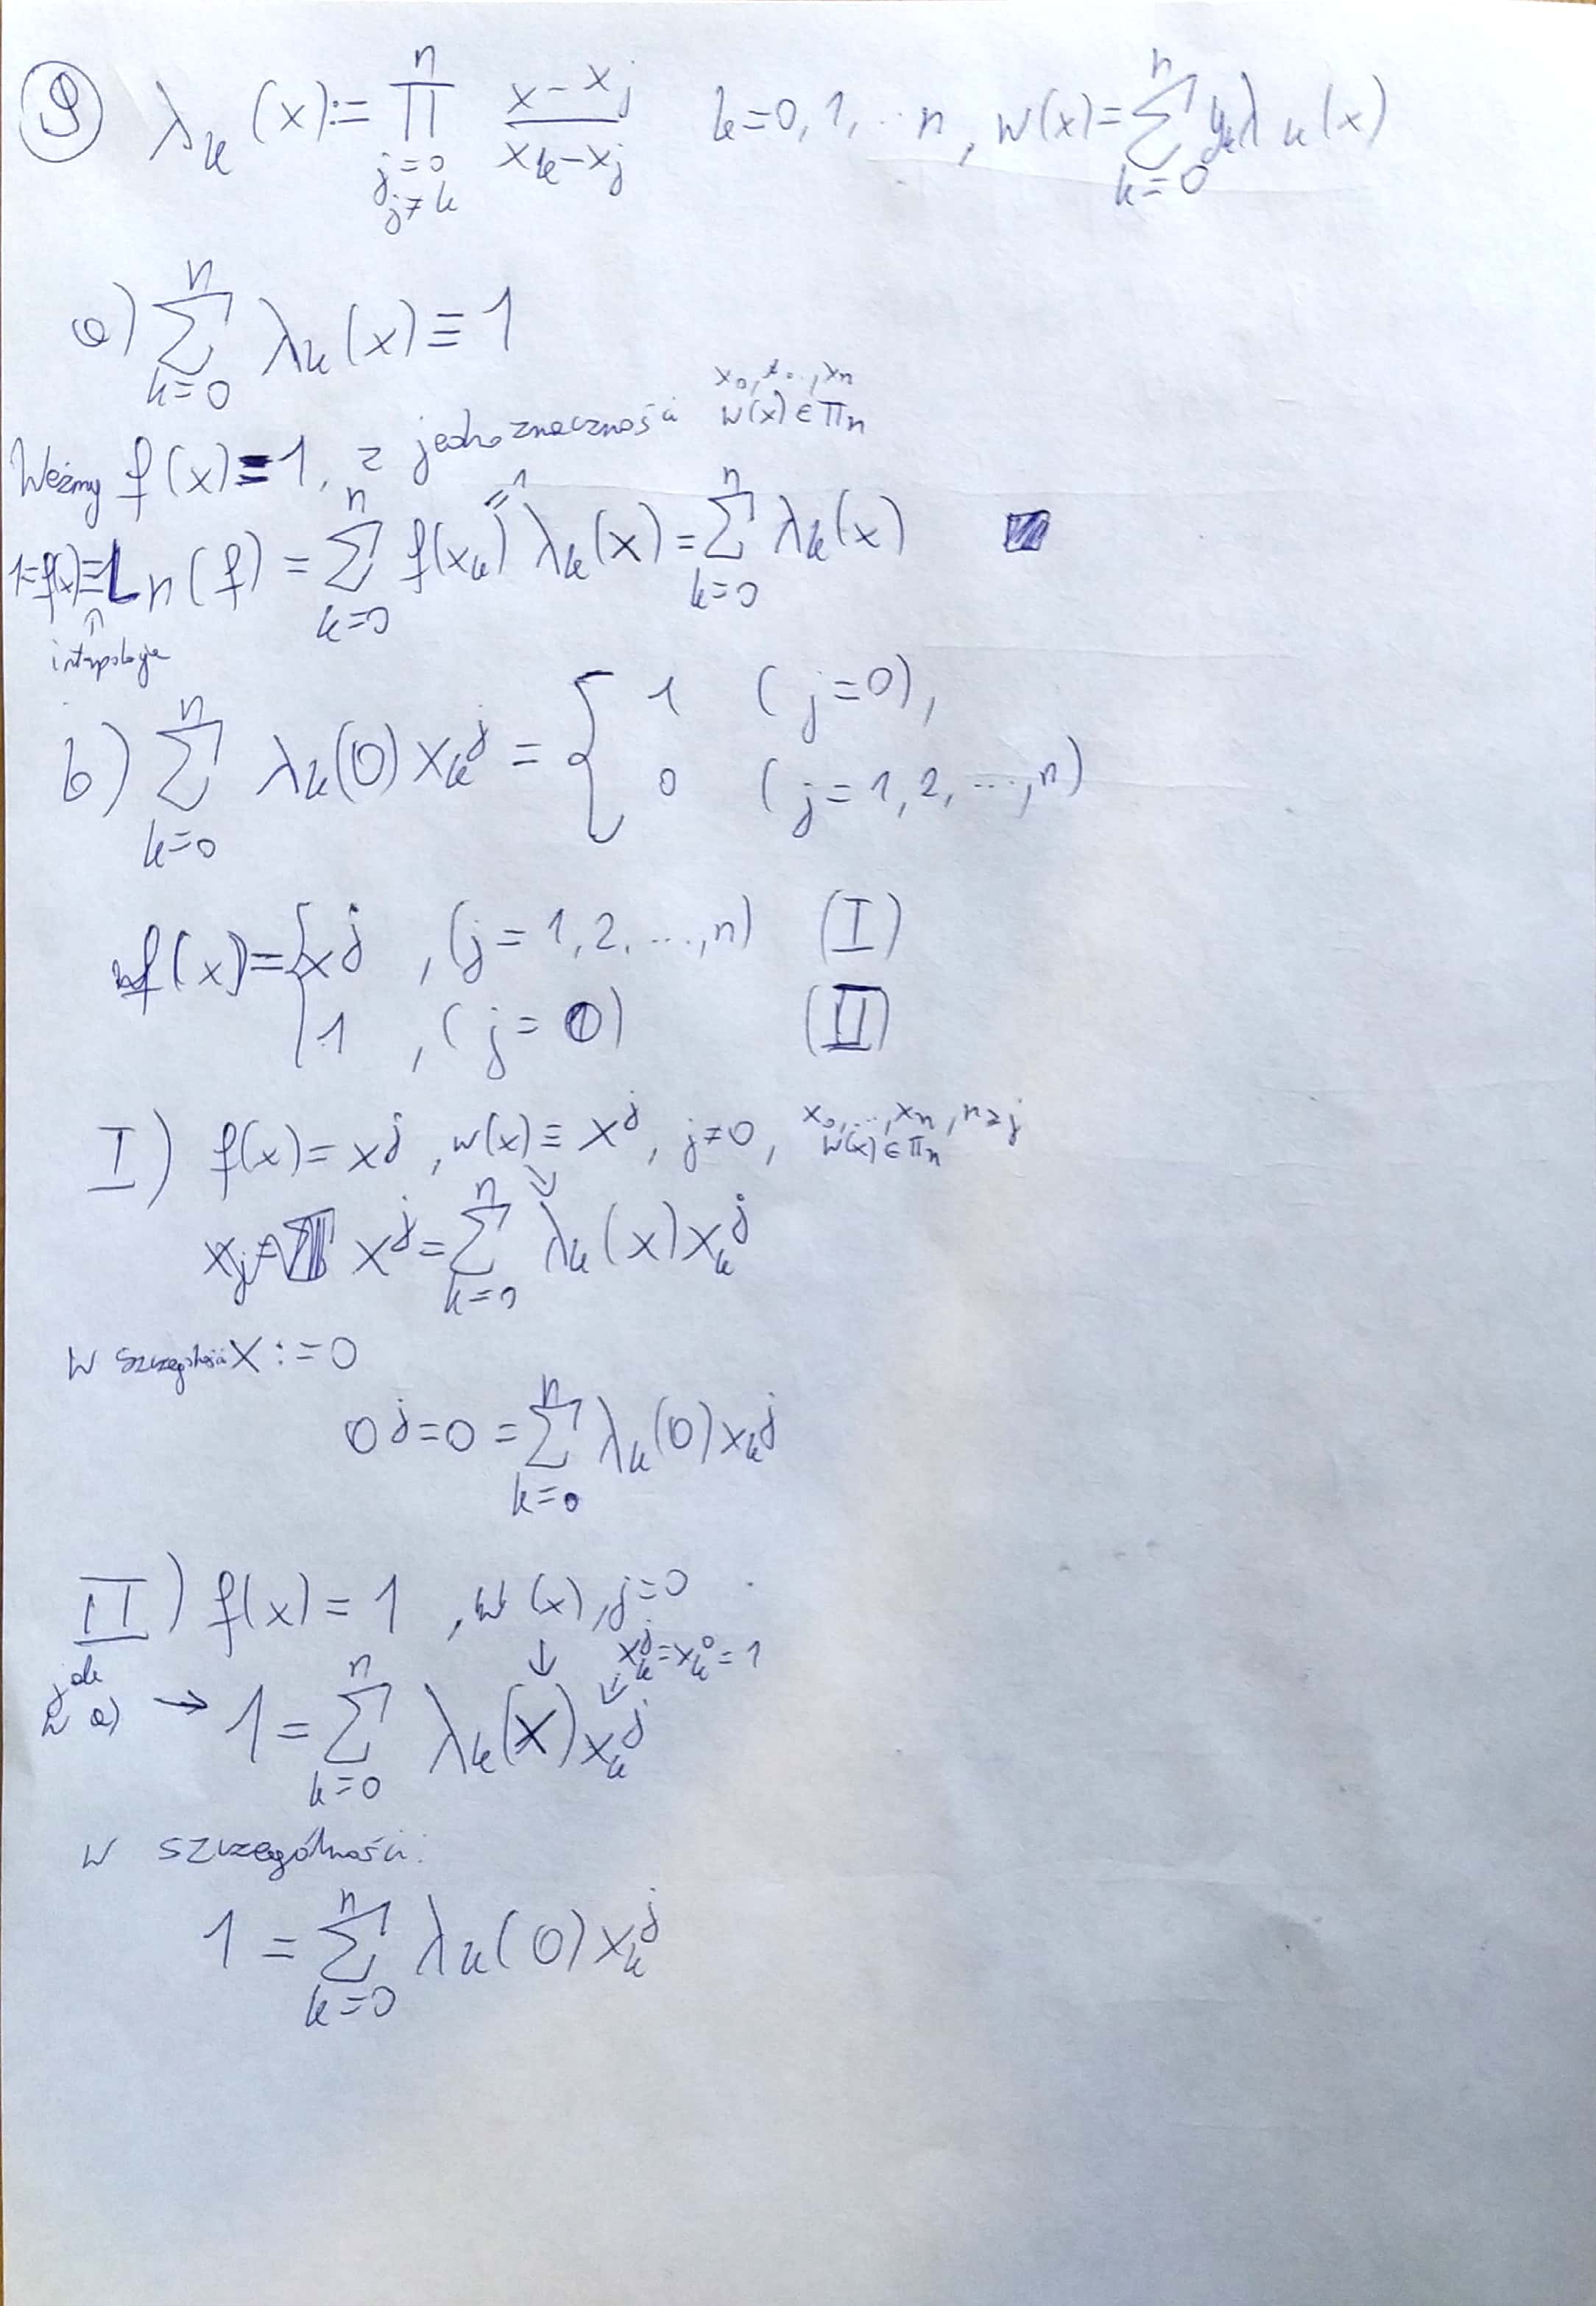 9 λₖ(x) := ∏_{j=0, j≠k}^{n} (x-xⱼ)/(xₖ-xⱼ) k=0,1,...n, w(x)=∑_{k=0}^{n} yₖλₖ(x)
a) ∑_{k=0}^{n} λₖ(x) ≡ 1
Weźmy f(x)≡1, z jednoznaczności x₀,x...,xₙ w(x)∈Πₙ
1=f(x)≡Lₙ(f) = ∑_{k=0}^{n} f(xₖ) λₖ(x) = ∑_{k=0}^{n} λₖ(x)
=1
↑
b) ∑_{k=0}^{n} λₖ(0) xₖ^j = { 1 (j=0),
0 (j=1,2,...,n)
f(x)= { x^j , (j=1,2,...,n) (I)
1 , (j=0) (II)
I) f(x)=x^j, w(x)≡x^j, j≠0, x₀,...,xₙ, n≥j w(x)∈Πₙ
↓
x^j = ∑_{k=0}^{n} λₖ(x) xₖ^j
w szczególności x:=0
0^j=0=∑_{k=0}^{n} λₖ(0) xₖ^j
II) f(x)=1, w(x), j=0
↓ xₖ^j=xₖ^0=1
jak w a) → 1=∑_{k=0}^{n} λₖ(x) xₖ^j
w szczególności:
1=∑_{k=0}^{n} λₖ(0) xₖ^j